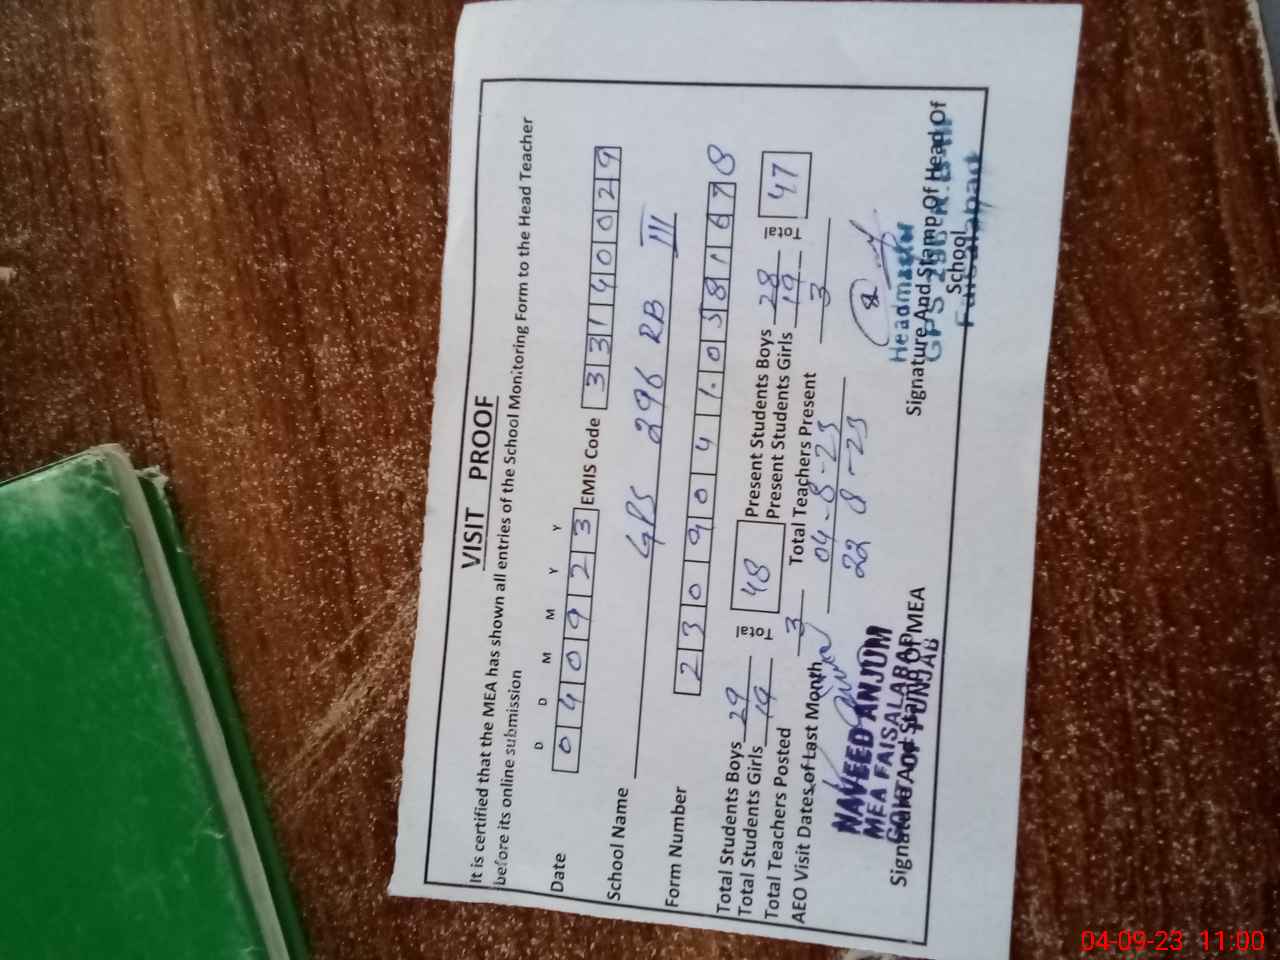 VISIT PROOF
It is certified that the MEA has shown all entries of the School Monitoring Form to the Head Teacher
before its online submission
D D M M Y Y
Date 040923 EMIS Code 33140029
School Name GPS 296 RB III
Form Number 230904103816 8
Total Students Boys 29 Total 48 Present Students Boys 28 Total 47
Total Students Girls 19 Present Students Girls 19
Total Teachers Posted 3 Total Teachers Present 3
AEO Visit Dates of Last Month 04-8-23
22 8-23
NAVEED ANJUM
MEA FAISALABAD
GOVT OF PUNJAB
Signature And Stamp Of MEA
Headmaster
GPS 296 R.B III
Faisalabad
Signature And Stamp Of Head Of
School
04-09-23 11:00